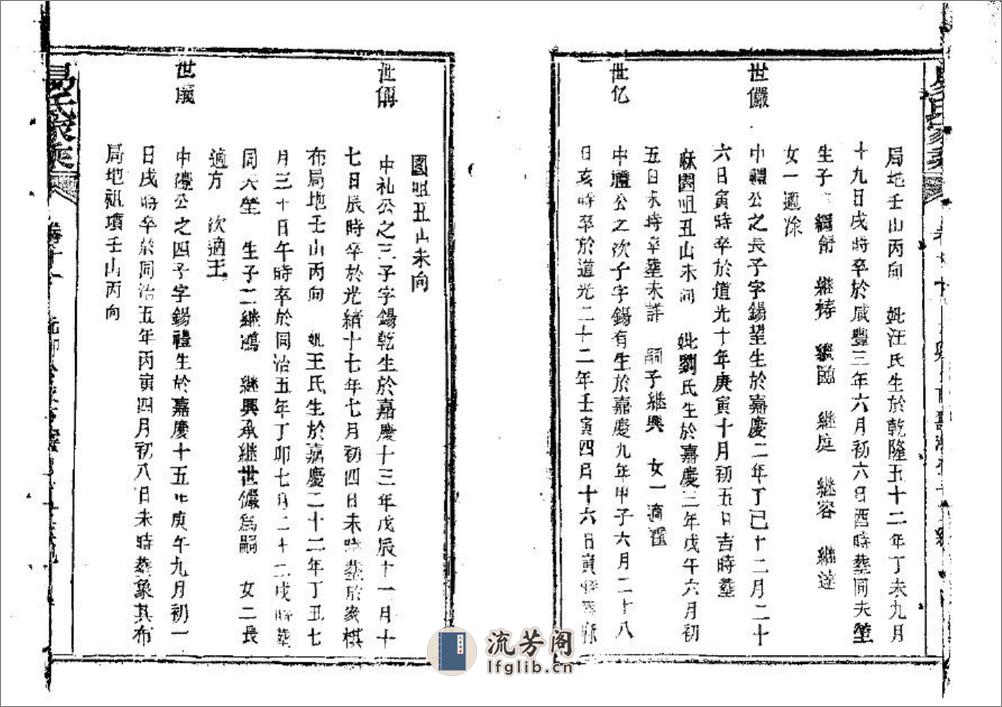 局地壬山丙向 妣汪氏生於乾隆五十二年丁未九月
十九日戌時卒於咸豐三年六月初六日酉時塟同夫塋
生子 繼 繼 繼 繼庭 繼容 繼達
女一適涂
世儼
中禮公之長子字錫望生於嘉慶二年丁巳十二月二十
六日寅時卒於道光十年庚寅十月初五日吉時塟
園咀丑山未向 妣劉氏生於嘉慶三年戊午六月初
五日未時卒塟未詳 嗣子繼興 女一適
世亿
中禮公之次子字錫有生於嘉慶九年甲子六月二十八
日亥時卒於道光二十二年壬寅四月十六日寅時
園咀丑山未向
世
中礼公之三子字錫乾生於嘉慶十三年戊辰十一月十
七日辰時卒於光緒十七年七月初四日未時塟於象棋
布局地壬山丙向 妣王氏生於嘉慶二十二年丁丑七
月三十日午時卒於同治五年丁卯七月二十二戌時塟
同夫塋 生子二繼鴻 繼興承繼世儼為嗣 女二長
適方 次適王
世
中禮公之四子字錫禮生於嘉慶十五年庚午九月初一
日戌時卒於同治五年丙寅四月初八日未時塟象其布
局地祖墳壬山丙向
易氏家乘
卷十一